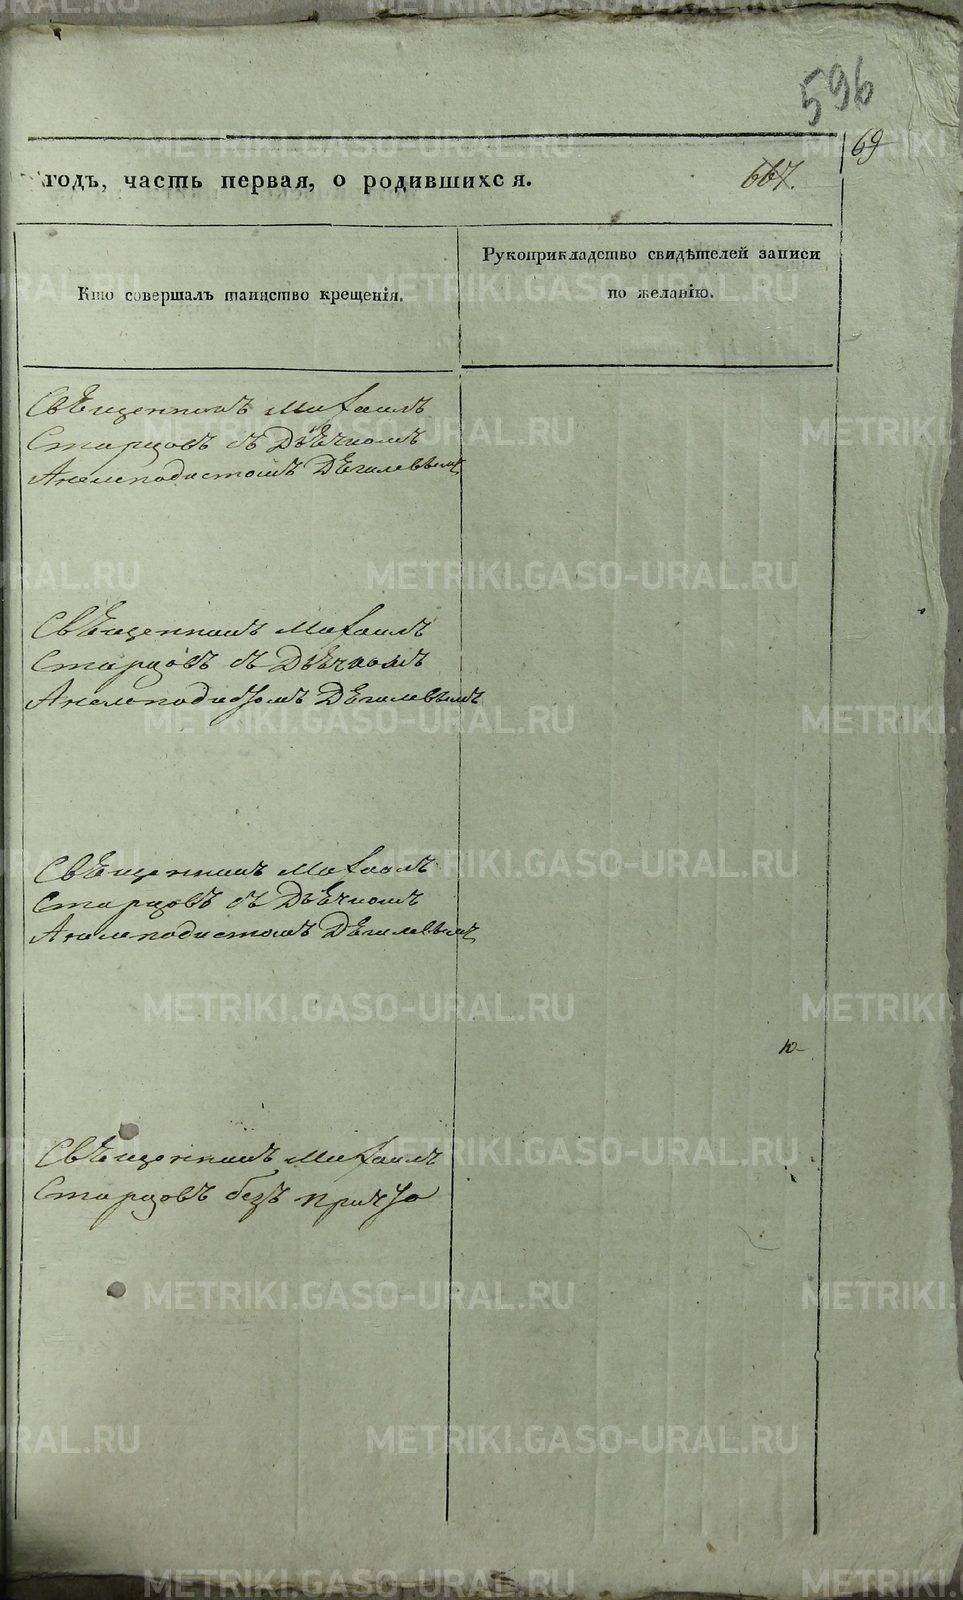 596
69
годъ, часть первая, о родившихся.
667.
Кто совершалъ таинство крещенія.
Рукоприкладство свидѣтелей записи
по желанію.
Священникъ Михаилъ
Старцовъ съ Дьячкомъ
Анемподистомъ Дѣгилевымъ
Священникъ Михаилъ
Старцовъ съ Дьячкомъ
Анемподистомъ Дѣгилевымъ
Священникъ Михаилъ
Старцовъ съ Дьячкомъ
Анемподистомъ Дѣгилевымъ
Священникъ Михаилъ
Старцовъ безъ причта
METRIKI.GASO-URAL.RU